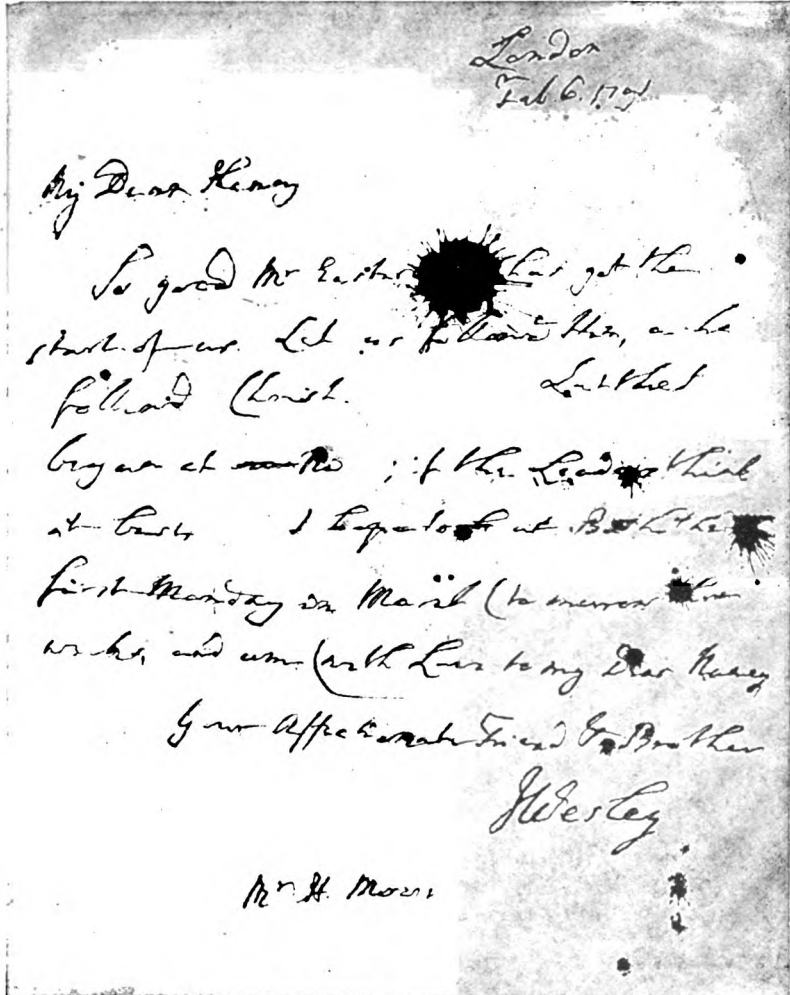 London
Feb 6. 1791
My Dear Henry
So good Mr Easter has got the
start of us. Let us follow him, as he
followed Christ. Let the
began at ; if the Leaders think
it best. I hope to be at Bath the
first Monday in March (to morrow
weeks, and am (with Love to my Dear Nancy
Your Affectionate Friend & Brother
JWesley
Mr H. Moore